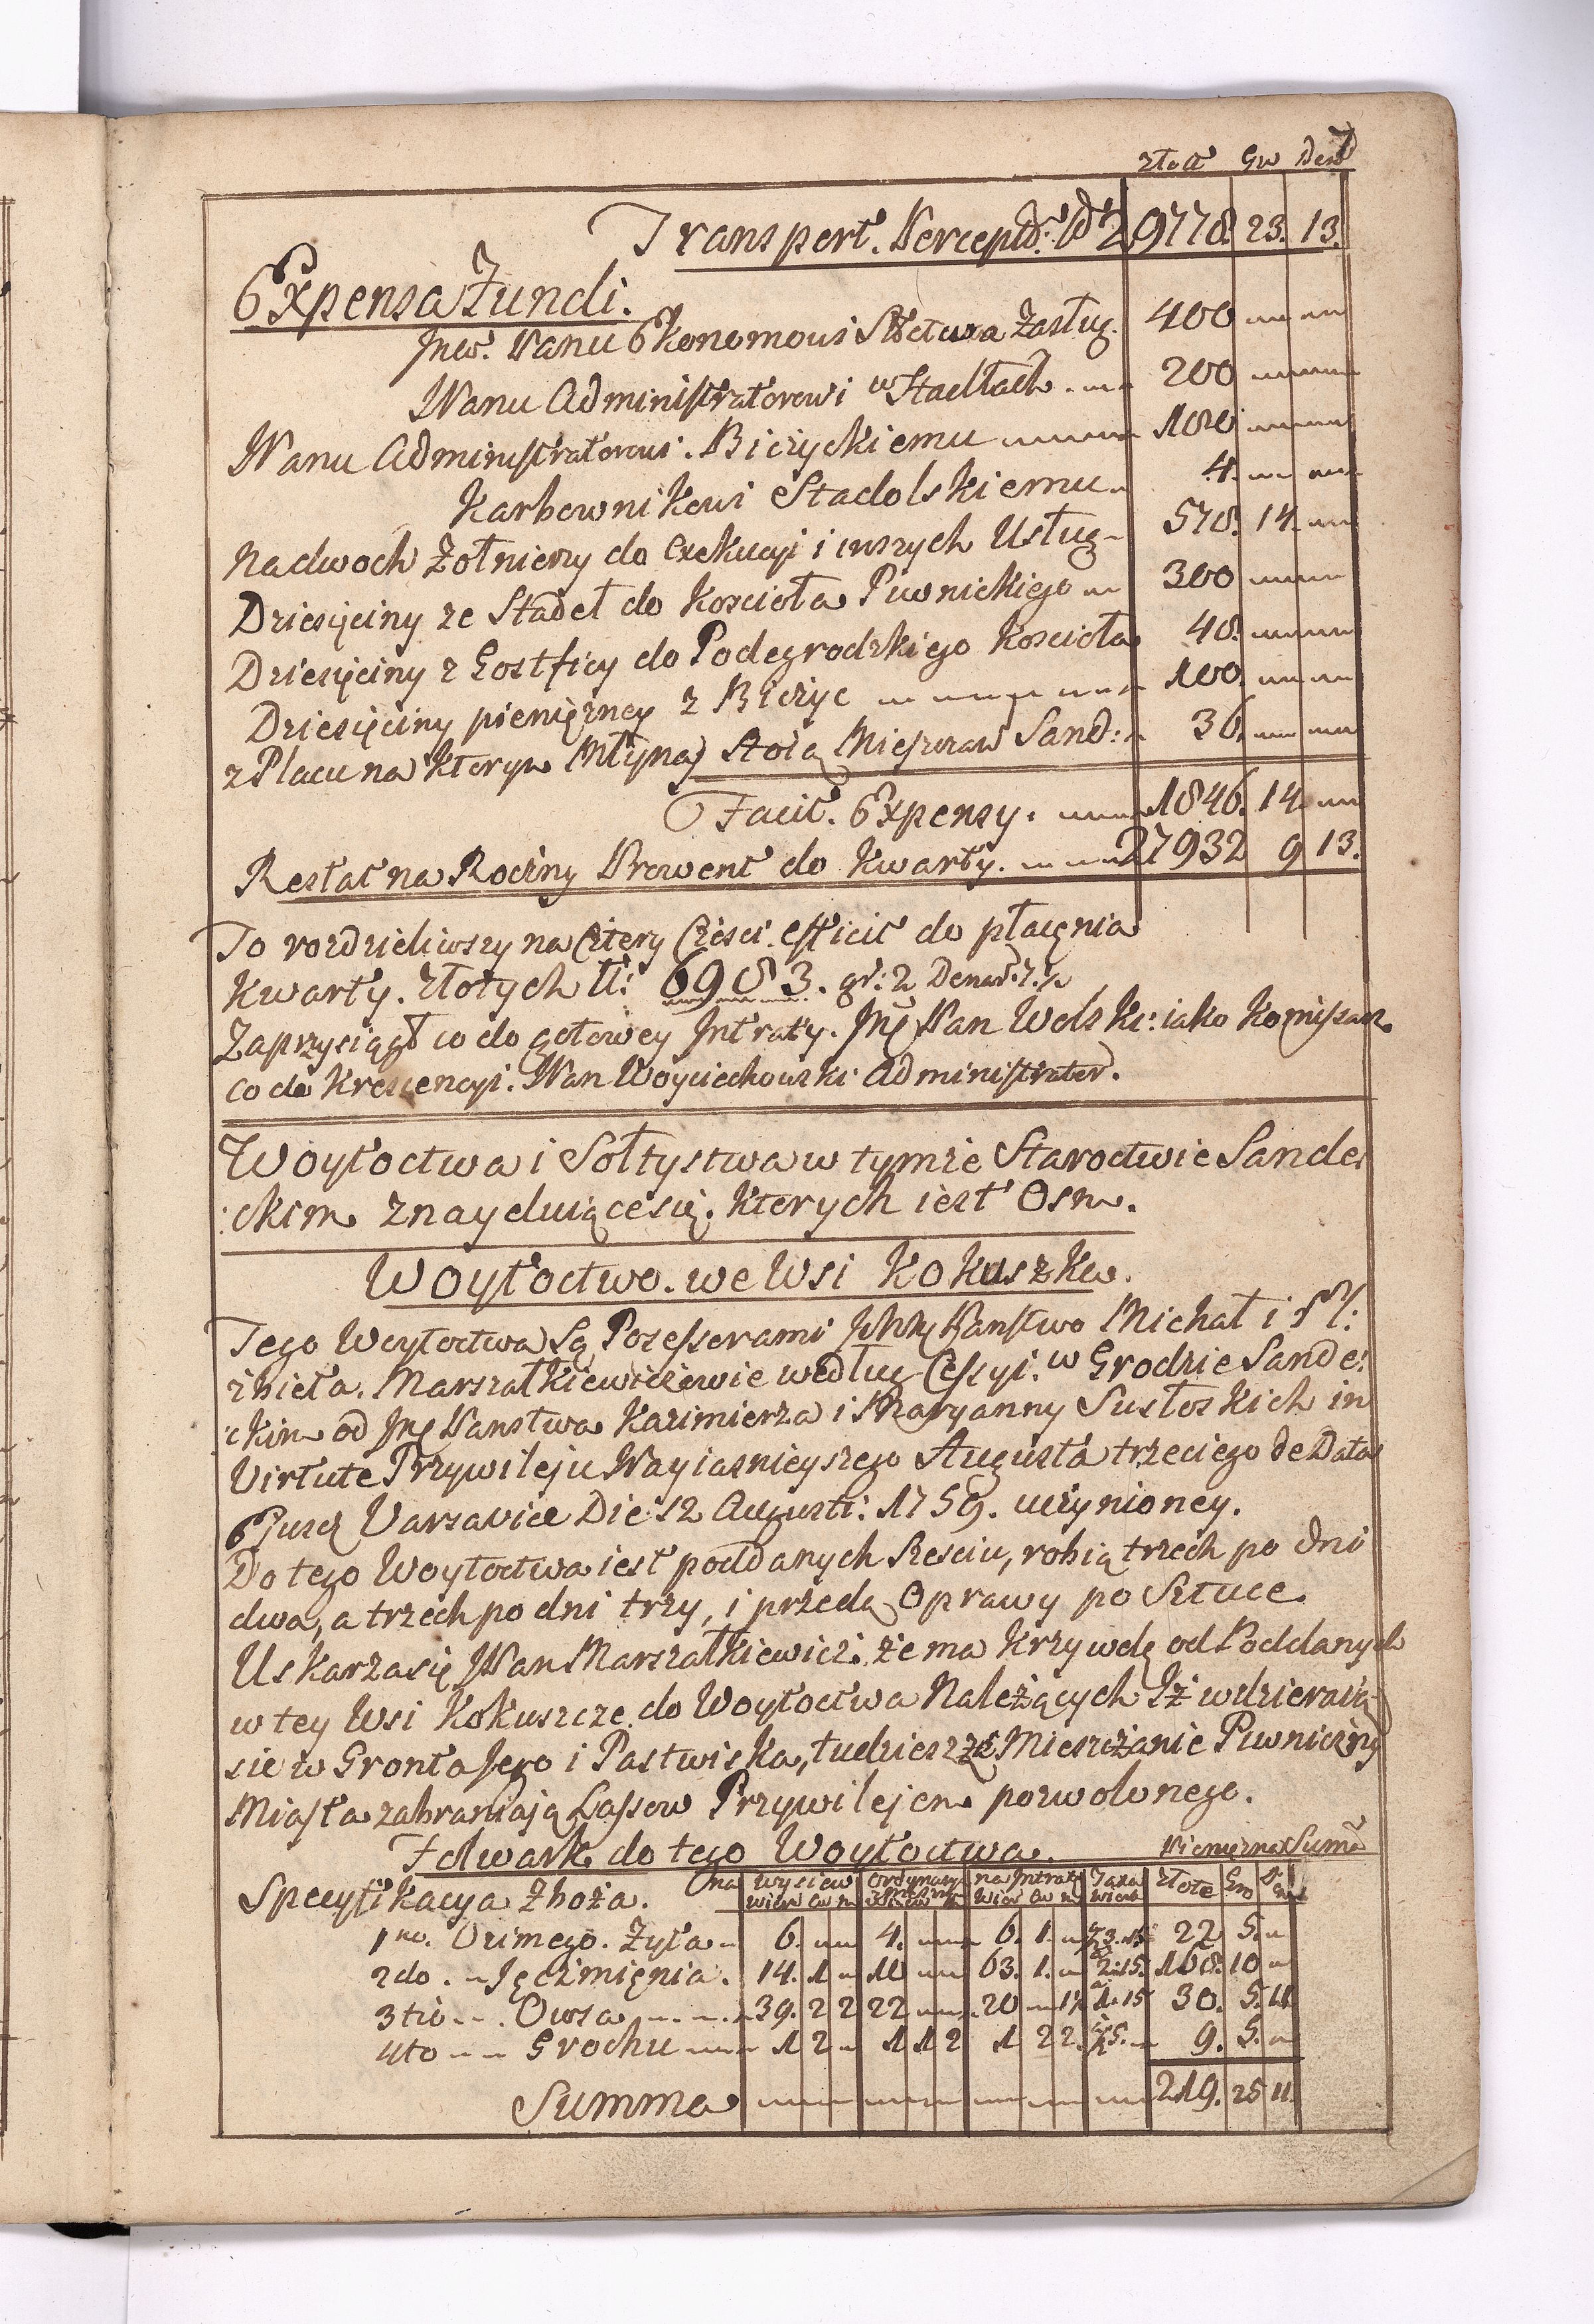 7
złott Gr Den
Transport. Percepta: 29778. 23. 13.
Expensa Fundi.
Jmć. Panu Ekonomowi Sttctwa Zasług. 400
JPanu Administratorowi w Stadłach 200
JPanu Administratorowi. Biczyckiemu 180
Karbownikowi Stadolskiemu 4.
Na dwoch Żołnierzy do Exekucyi i inszych Usług 578. 14.
Dziesięciny ze Stadeł do Koscioła Piwnickiego 300
Dziesięciny z Gostficy do Podegrodzkiego Koscioła 48.
Dziesięciny pieniężney z Biczyc 100.
z Placu na Ktorym Młyną Stoią Mieszczan Sand: 36.
Facit. Expensy. 1846. 14.
Restat na Roczny Prowent do Kwarty. 27932 9 13.
To rozdzieliwszy na Cztery Części. efficit do płacęnia
Kwarty. Złotych tt: 6983. gr: 2 Denar: 7.½
Zaprzysiągł co do gotowey Intraty. Jmć Pan Wolski: iako Komissarz
co do Krescencyi. JPan Woyciechowski Administrator.
Woytoctwa i Sołtystwa w tymże Staroctwie Sande:
:ckim znayduiące się. Ktorych iest Osm.
Woytoctwo. we Wsi Kokuszka.
Tego Woytoctwa Są Possessorami Jchmć Państwo Michał i El:
żbieta. Marszałkiewiczowie według Cessyi. w Grodzie Sande:
:ckim od Jmć Państwa Kazimierza i Maryanny Susłoskich in
Virtute Przywileju Nayiasnieyszego Augusta trzeciego de Data
Ejusd Varsaviæ Die 12 Augusti: 1759. uczynioney.
Do tego Woytoctwa iest poddanych Szesciu, robią trzech po dni
dwa, a trzech po dni trzy, i przedą Oprawy po Sztuce.
Uskarza się JPan Marszałkiewicz: że ma Krzywdę od Poddanych
w tey Wsi Kokuszcze do Woytoctwa Należących Iż wdzieraią
sie w Gronta Jego i Pastwiska, tudziesz że Mieszczanie Piwniczny
Miasta zabraniają Lassow Przywilejem pozwolonego.
Folwark do tego Woytoctwa. Pieniężna Summa
Specyfikacya Zboża. na Wysiew Ordynaryą na Intratę Taxa Złote Gro D.
1mo. Ozimego. Żyta 6. 4. 6. 1. 3.15 22 5.
2do. Jęczmięnia. 14. 1 10 63. 1. 2.15. 168. 10
3tio. Owsa 39. 2 2 22 20 1½ 1.15 30. 5. 11
4to Grochu 1 2 1 1 2 1 2 2. 5. 9. 5.
Summa 219. 25 11.